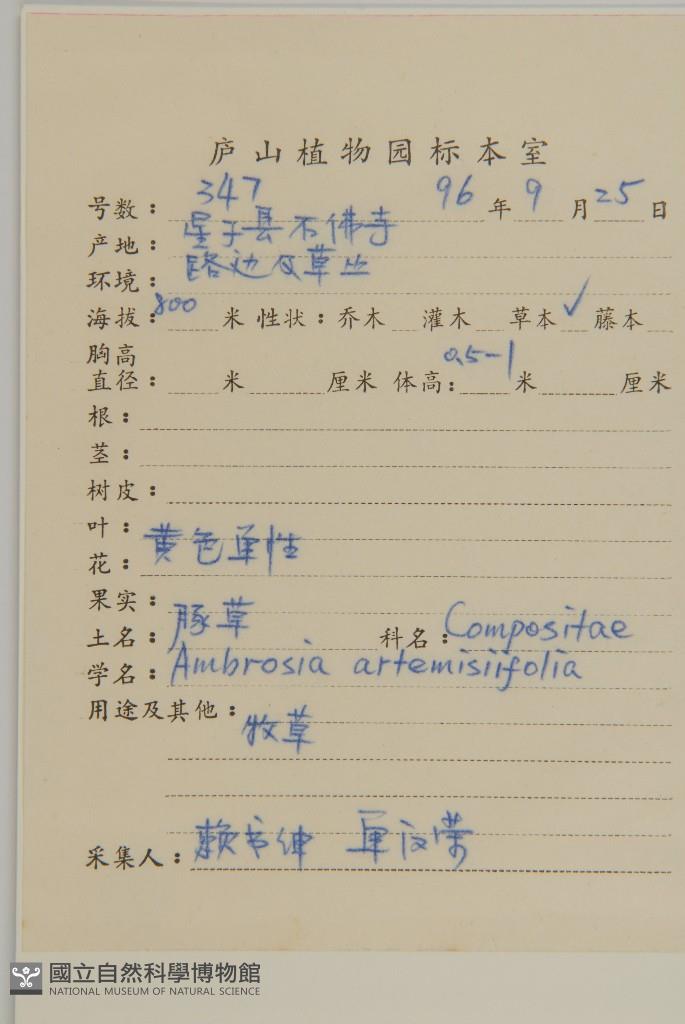 庐山植物园标本室
号数：347 96年9月25日
产地：星子县石佛寺
环境：路边及草丛
海拔：800米 性状：乔木 灌木 草本✓ 藤本
胸高
直径： 米 厘米 体高：0.5-1米 厘米
根：
茎：
树皮：
叶：
花：黄色单性
果实：
土名：豚草 科名：Compositae
学名：Ambrosia artemisiifolia
用途及其他：牧草
采集人：赖书绅 单汉荣
國立自然科學博物館
NATIONAL MUSEUM OF NATURAL SCIENCE